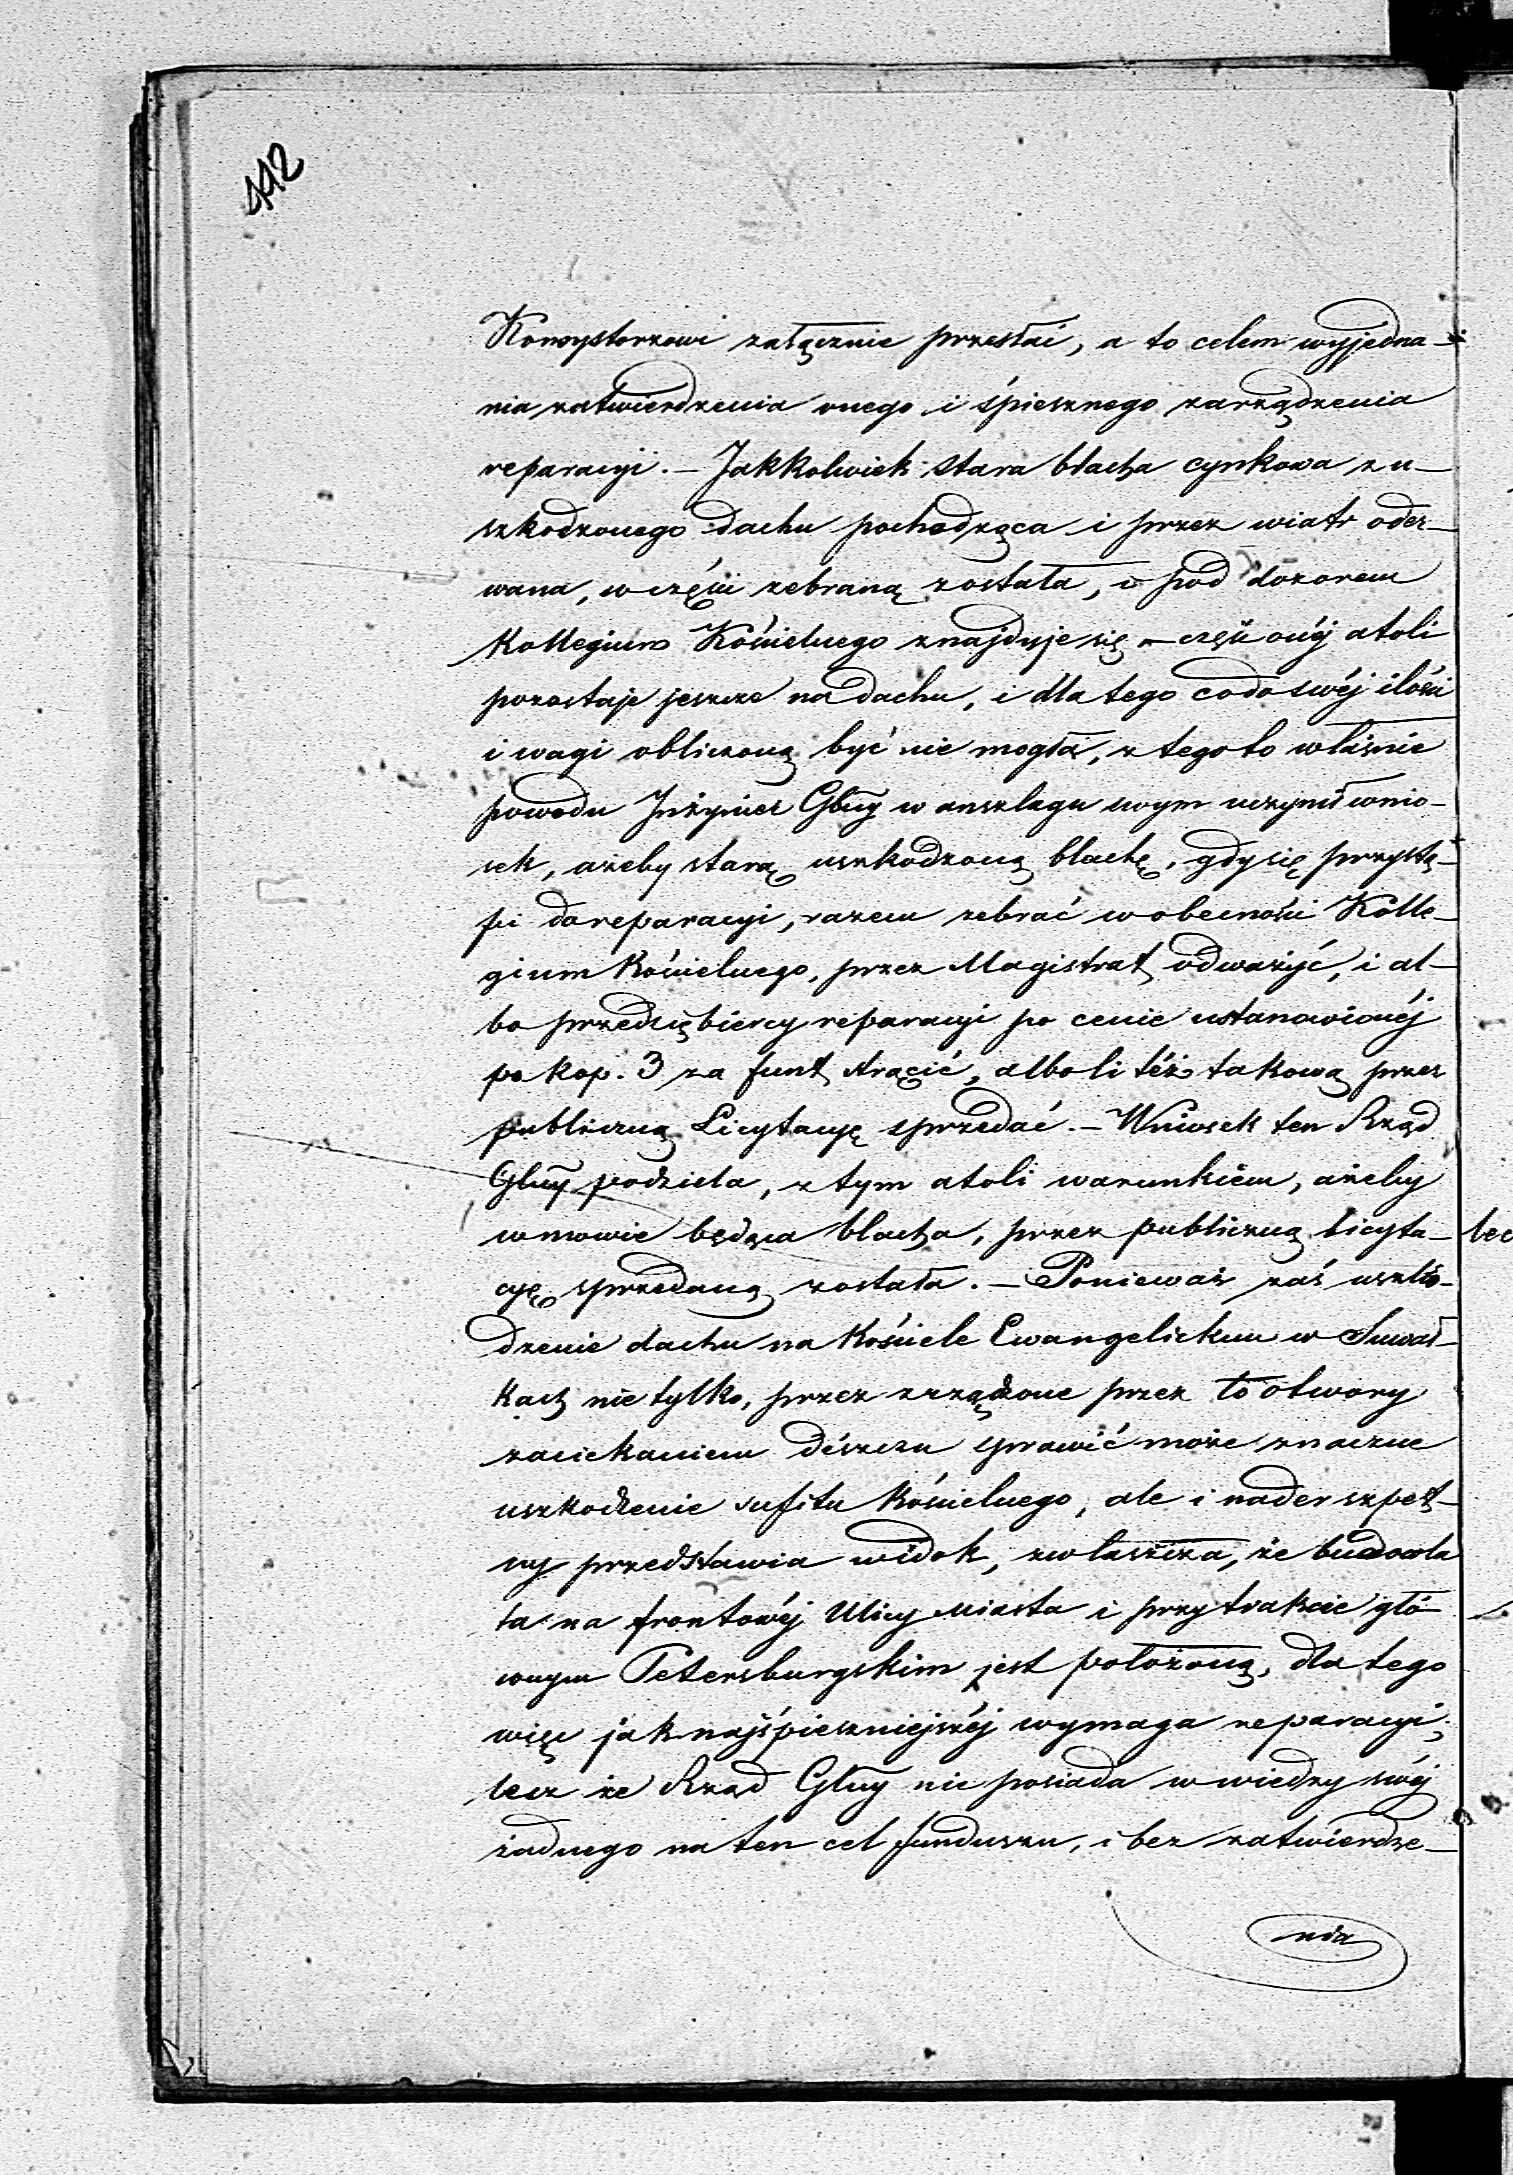 442
Konsystorzowi załącznie przesłać, a to celem wyjedna-
nia zatwierdzenia onego i śpiesznego zarządzenia
reparacyi. – Jakkolwiek stara blacha cynkowa z u-
szkodzonego dachu pochodząca i przez wiatr oder-
wana, w części zebraną została, i pod dozorem
Kollegium Kościelnego znajduje się – część onéj atoli
pozostaje jeszcze na dachu, i dla tego co do swéj ilości
i wagi obliczoną być nie mogła, z tego to właśnie
powodu Inżynier Gbny w anszlagu swym uczynił wnio-
sek, ażeby starą uszkodzoną blachę, gdy się przystę-
pi do reparacyi, razem zebrać w obecności Kolle-
gium Kościelnego, przez Magistrat odważyć, i al-
bo przedsiębiercy reparacyi po cenie ustanowionéj
po kop. 3 za funt strącić, alboli téż takową przez
publiczną Licytacyę sprzedać. – Wniosek ten Rząd
Gbny podziela, z tym atoli warunkiem, ażeby
w mowie będąca blacha, przez publiczną licyta-
cyę sprzedaną została. – Ponieważ zaś uszko-
dzenie dachu na Kościele Ewangelickim w Suwał-
kach nie tylko, przez zrządzone przez to otwory
zaciekaniem dészczu sprawić może znaczne
uszkodzenie sufitu Kościelnego, ale i nader szpet-
ny przedstawia widok, zwłaszcza, że budowla
ta na frontowéj Ulicy Miasta i przy trakcie głó
wnym Petersburgskim jest położoną, dla tego
więc jak najśpieszniejszéj wymaga reparacyi,
lecz że Rząd Gbny nie posiada w wiedzy swéj
żadnego na ten cel funduszu, i bez zatwierdze-
nia